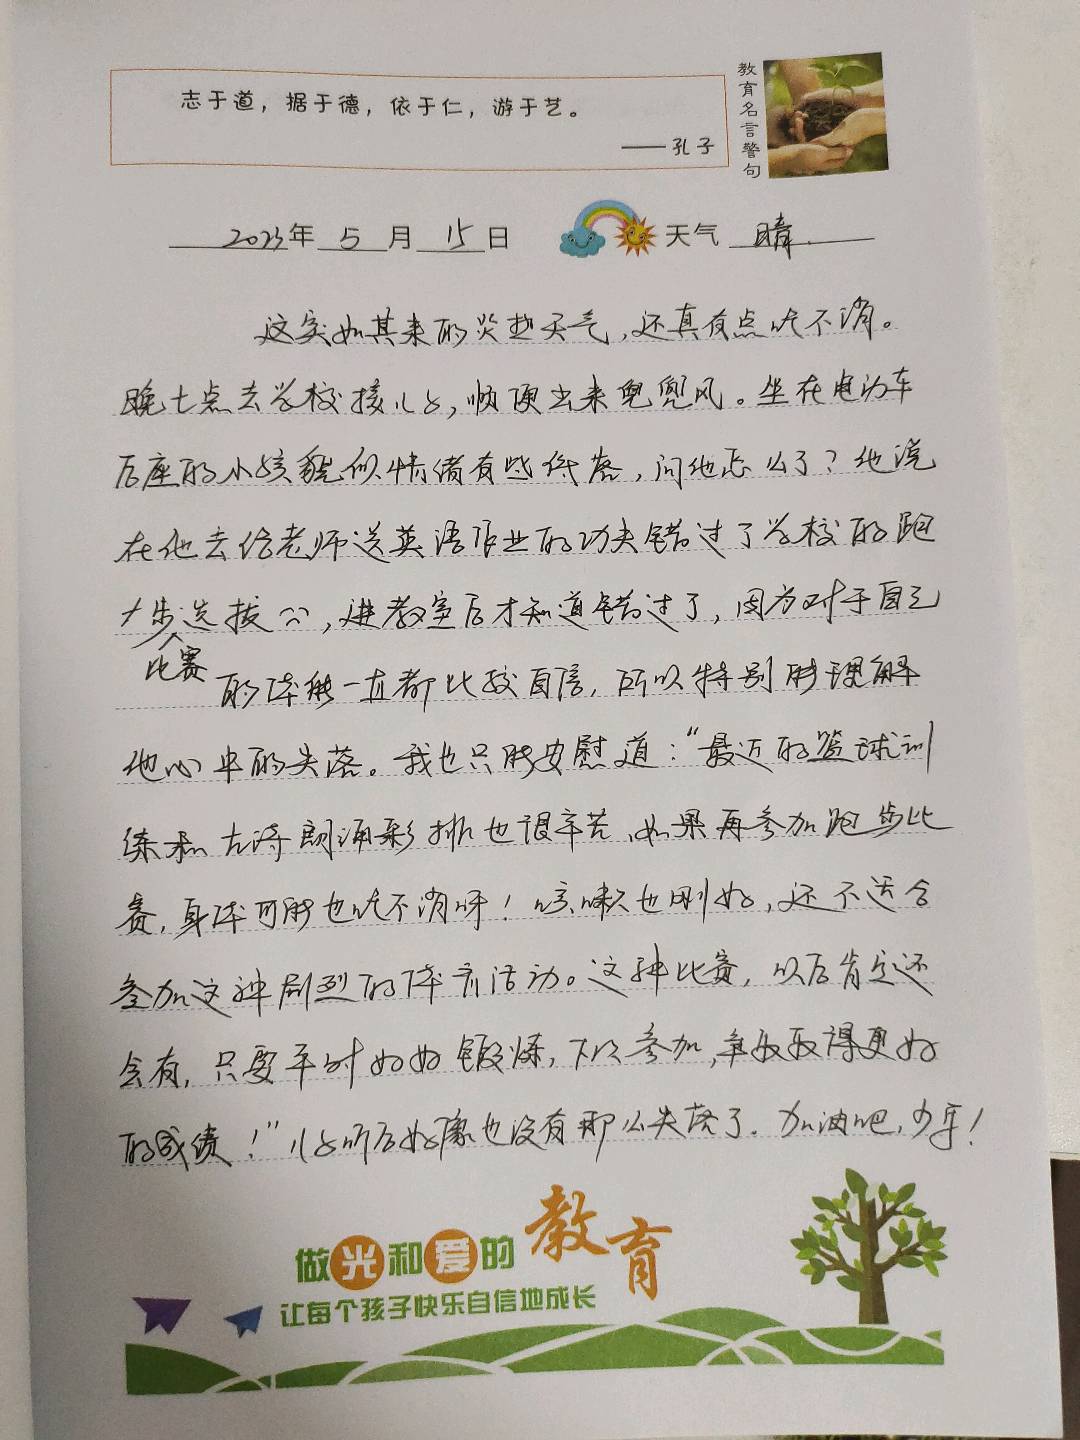 志于道，据于德，依于仁，游于艺。
——孔子
教育名言警句
2023年 5 月 15 日 天气 晴
这突如其来的炎热天气，还真有点吃不消。
晚七点去学校接儿子，顺便出来兜兜风。坐在电动车
后座的小孩貌似情绪有些低落，问他怎么了？他说
在他去给老师送英语作业的功夫错过了学校的跑
步比赛选拔，进教室后才知道错过了，因为对于自己
的体能一直都比较自信，所以特别能理解
他心中的失落。我也只能安慰道：“最近的篮球训
练和古诗朗诵彩排也很辛苦，如果再参加跑步比
赛，身体可能也吃不消呀！咳嗽也刚好，还不适合
参加这种剧烈的体育活动。这种比赛，以后肯定还
会有，只要平时好好锻炼，下次参加，争取取得更好
的成绩！”儿子听后好像也没有那么失落了。加油吧，少年！
做光和爱的教育
让每个孩子快乐自信地成长